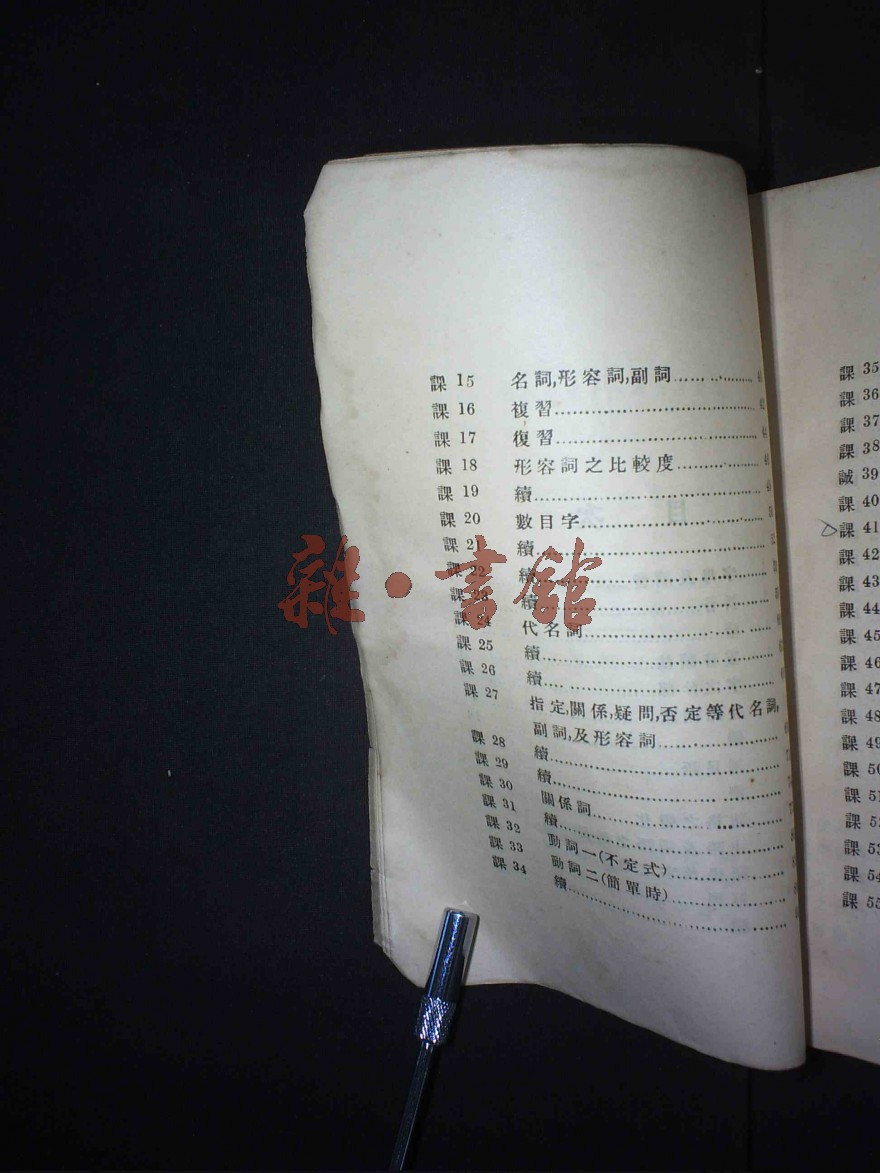 課 15 名詞,形容詞,副詞
課 16 複習
課 17 復習
課 18 形容詞之比較度
課 19 續
課 20 數目字
課 21 續
課 22 續
課 23 續
課 24 代名詞
課 25 續
課 26 續
課 27 指定,關係,疑問,否定等代名詞,
副詞,及形容詞
課 28 續
課 29 續
課 30 關係詞
課 31 續
課 32 動詞一(不定式)
課 33 動詞二(簡單時)
課 34 續
雜·書館
課 35
課 36
課 37
課 38
誠 39
課 40
課 41
課 42
課 43
課 44
課 45
課 46
課 47
課 48
課 49
課 50
課 51
課 52
課 53
課 54
課 55